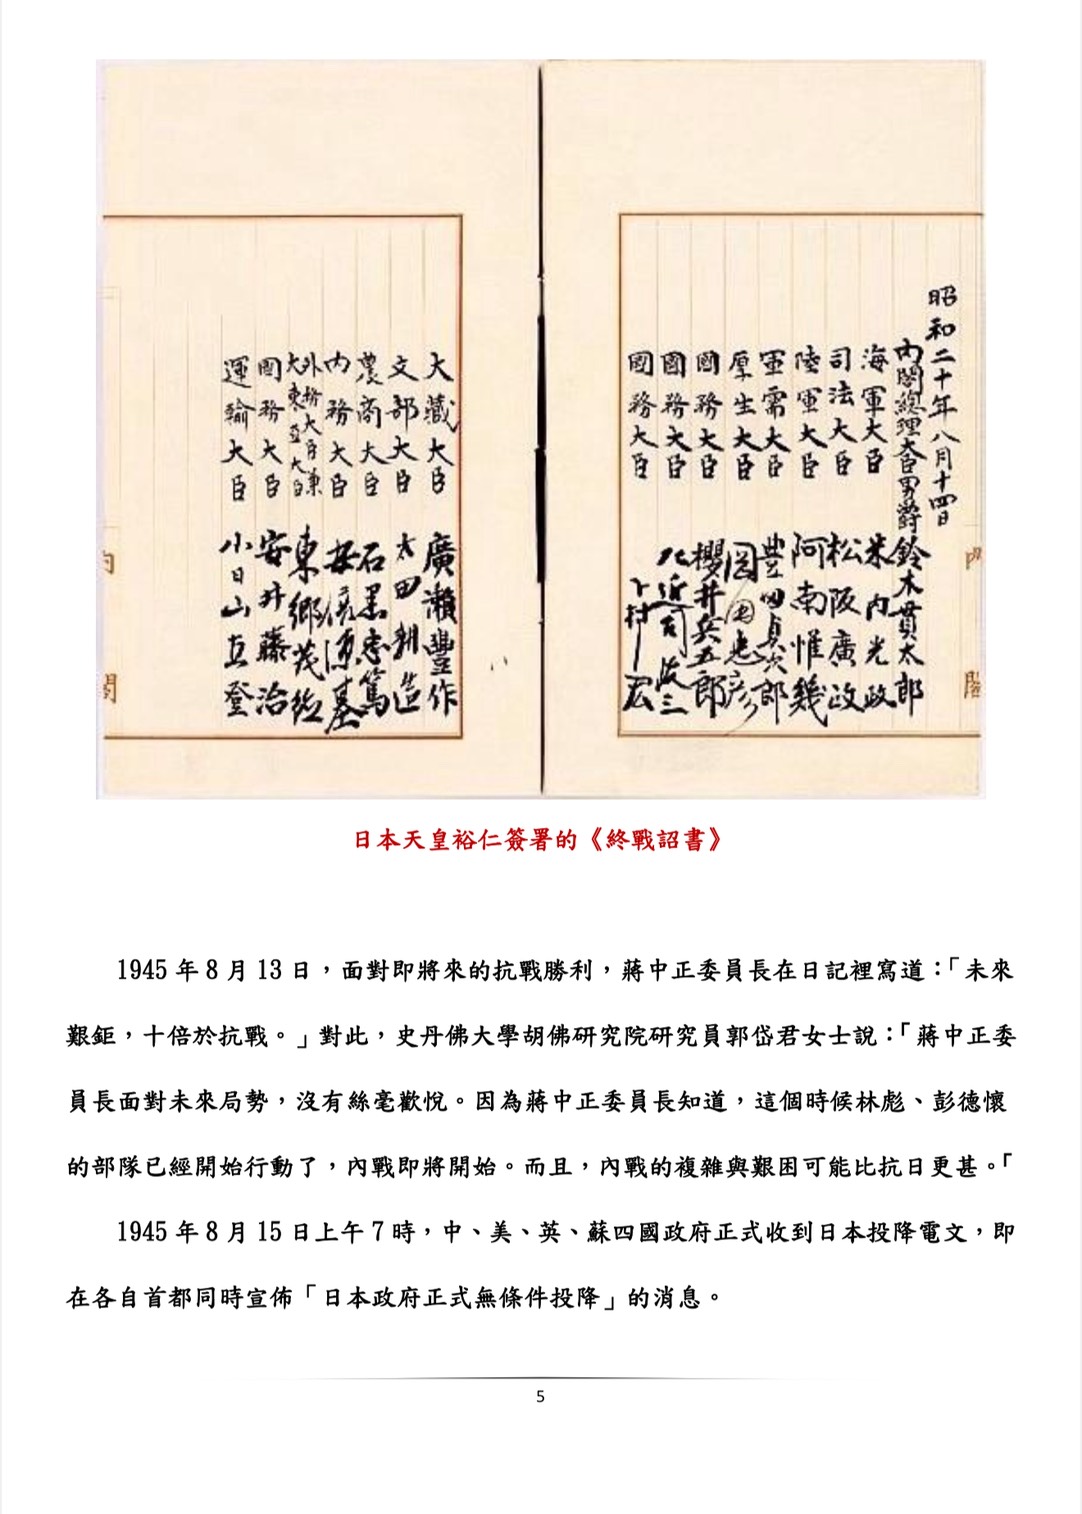 昭和二十年八月十四日
內閣總理大臣男爵 鈴木貫太郎
海軍大臣 米内光政
司法大臣 松阪廣政
陸軍大臣 阿南惟幾
軍需大臣 豊田貞次郎
厚生大臣 岡田忠彦
國務大臣 櫻井兵五郎
國務大臣 左近司政三
國務大臣 下村宏
大藏大臣 廣瀬豐作
文部大臣 太田耕造
農商大臣 石黒忠篤
内務大臣 安倍源基
外務大臣兼
大東亞大臣 東郷茂徳
國務大臣 安井藤治
運輸大臣 小日山直登
內
閣
內
閣
日本天皇裕仁簽署的《終戰詔書》
1945 年 8 月 13 日，面對即將來的抗戰勝利，蔣中正委員長在日記裡寫道：「未來
艱鉅，十倍於抗戰。」對此，史丹佛大學胡佛研究院研究員郭岱君女士說：「蔣中正委
員長面對未來局勢，沒有絲毫歡悅。因為蔣中正委員長知道，這個時候林彪、彭德懷
的部隊已經開始行動了，內戰即將開始。而且，內戰的複雜與艱困可能比抗日更甚。「
1945 年 8 月 15 日上午 7 時，中、美、英、蘇四國政府正式收到日本投降電文，即
在各自首都同時宣佈「日本政府正式無條件投降」的消息。
5